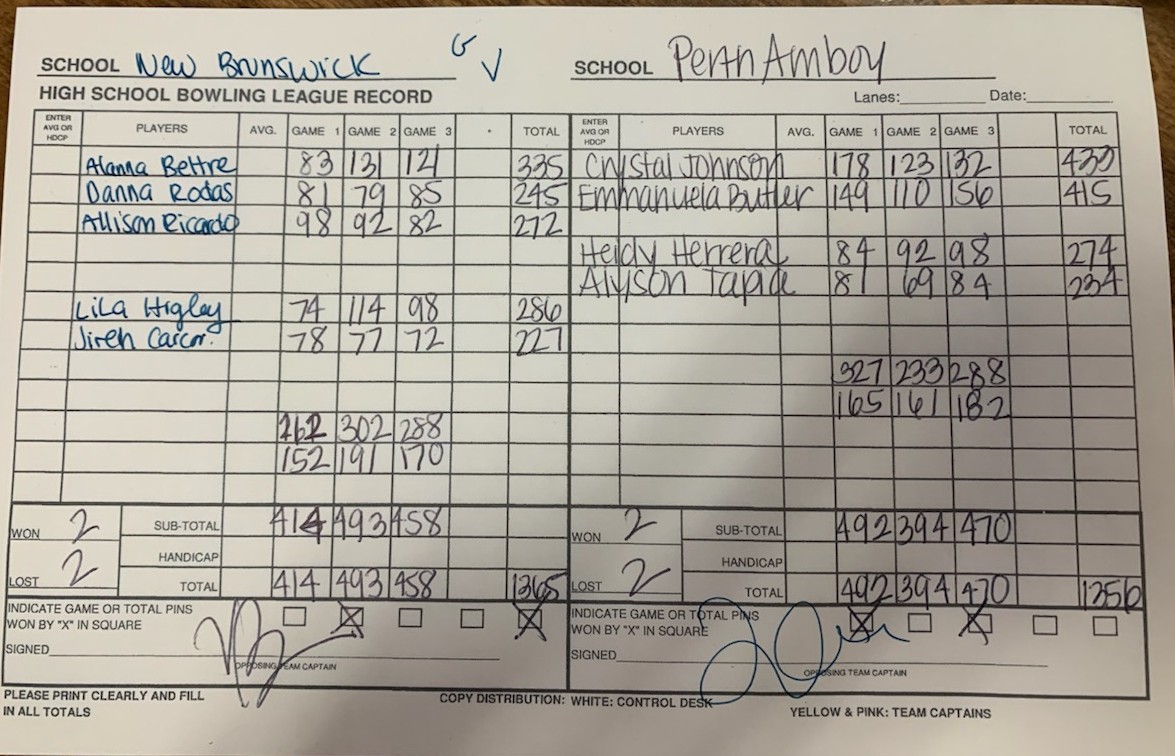 SCHOOL New Brunswick G V SCHOOL Perth Amboy
HIGH SCHOOL BOWLING LEAGUE RECORD Lanes: Date:
ENTER AVG OR HDCP PLAYERS AVG. GAME 1 GAME 2 GAME 3 TOTAL ENTER AVG OR HDCP PLAYERS AVG. GAME 1 GAME 2 GAME 3 TOTAL
Alanna Beltre 83 131 121 335 Crystal Johnson 178 123 132 433
Danna Rodas 81 79 85 245 Emmanuela Butler 149 110 156 415
Allison Ricardo 98 92 82 272
Heidy Herrera 84 92 98 274
Alyson Tapia 81 69 84 234
Lila Higley 74 114 98 286
Jireh 78 77 72 227
327 233 288
165 161 182
262 302 288
152 191 170
WON 2 SUB-TOTAL 414 493 458 WON 2 SUB-TOTAL 492 394 470
HANDICAP HANDICAP
LOST 2 TOTAL 414 493 458 1365 LOST 2 TOTAL 492 394 470 1356
INDICATE GAME OR TOTAL PINS X X INDICATE GAME OR TOTAL PINS X X
WON BY "X" IN SQUARE WON BY "X" IN SQUARE
SIGNED SIGNED
OPPOSING TEAM CAPTAIN OPPOSING TEAM CAPTAIN
PLEASE PRINT CLEARLY AND FILL COPY DISTRIBUTION: WHITE: CONTROL DESK YELLOW & PINK: TEAM CAPTAINS
IN ALL TOTALS